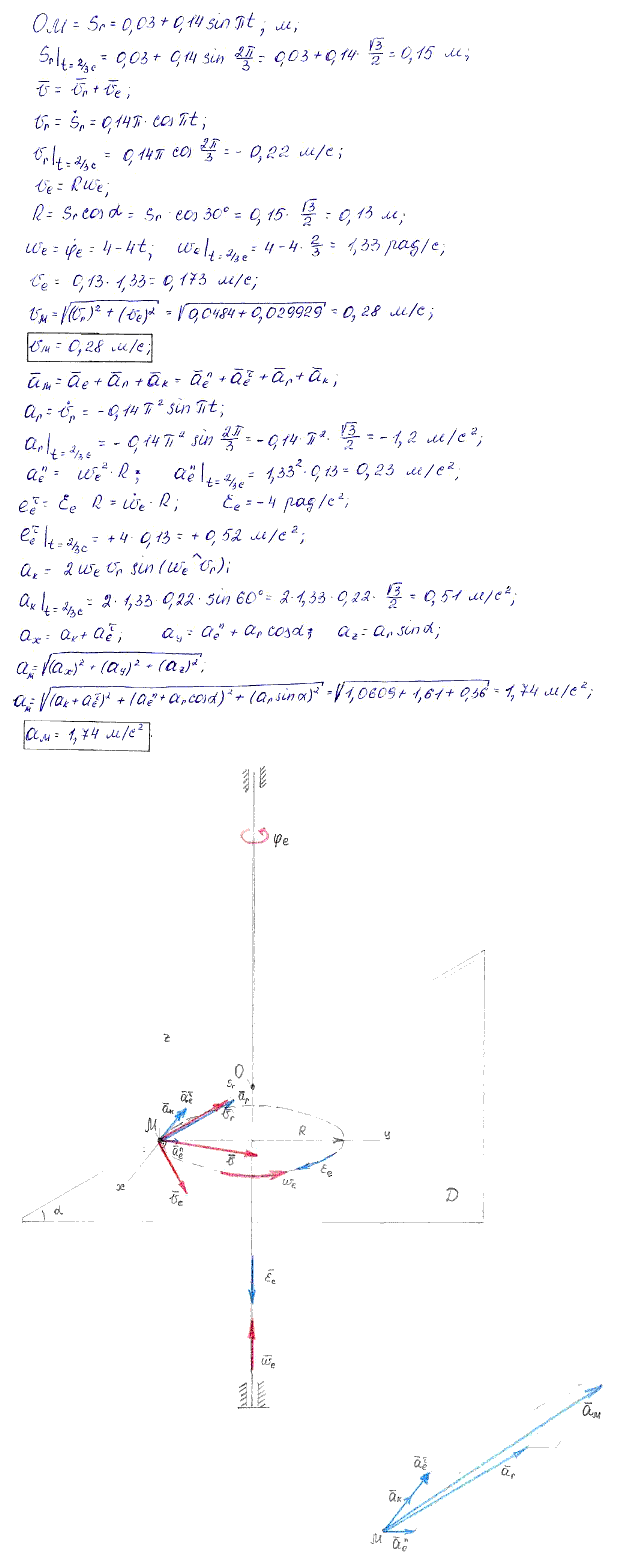 OM = Sr = 0,03 + 0,14 sin πt; м;
Sr|t=2/3c = 0,03 + 0,14 sin 2π/3 = 0,03 + 0,14 · √3/2 = 0,15 м;
v̄ = v̄r + v̄e;
vr = Ṡr = 0,14π · cos πt;
vr|t=2/3c = 0,14π cos 2π/3 = - 0,22 м/с;
ve = Rωe;
R = Sr cos α = Sr · cos 30° = 0,15 · √3/2 = 0,13 м;
ωe = φ̇e = 4 - 4t; ωe|t=2/3c = 4 - 4 · 2/3 = 1,33 рад/с;
ve = 0,13 · 1,33 = 0,173 м/с;
vм = √((vr)² + (ve)²) = √(0,0484 + 0,029929) = 0,28 м/с;
vм = 0,28 м/с;
āм = āe + ār + āк = āeⁿ + āe^τ + ār + āк;
ar = v̇r = -0,14π² sin πt;
ar|t=2/3c = - 0,14π² sin 2π/3 = -0,14 · π² · √3/2 = -1,2 м/с²;
aeⁿ = ωe² · R; aeⁿ|t=2/3c = 1,33² · 0,13 = 0,23 м/с²;
ee^τ = εe R = ω̇e · R; εe = -4 рад/с²;
ee^τ|t=2/3c = +4 · 0,13 = + 0,52 м/с²;
aк = 2ωe vr sin(ωe^vr);
aк|t=2/3c = 2 · 1,33 · 0,22 · sin 60° = 2 · 1,33 · 0,22 · √3/2 = 0,51 м/с²;
ax = aк + ae^τ; ay = aeⁿ + ar cos α; az = ar sin α;
aм = √((ax)² + (ay)² + (az)²);
aм = √((aк + ae^τ)² + (aeⁿ + ar cos α)² + (ar sin α)²) = √(1,0609 + 1,61 + 0,36) = 1,74 м/с²;
aм = 1,74 м/с².
φe
z
O
Sr
ār
āк
āe^τ
v̄r
M
R
y
āeⁿ
v̄
εe
ωe
x
v̄e
D
α
ε̄e
ω̄e
āм
āe^τ
ār
āк
M
āeⁿ